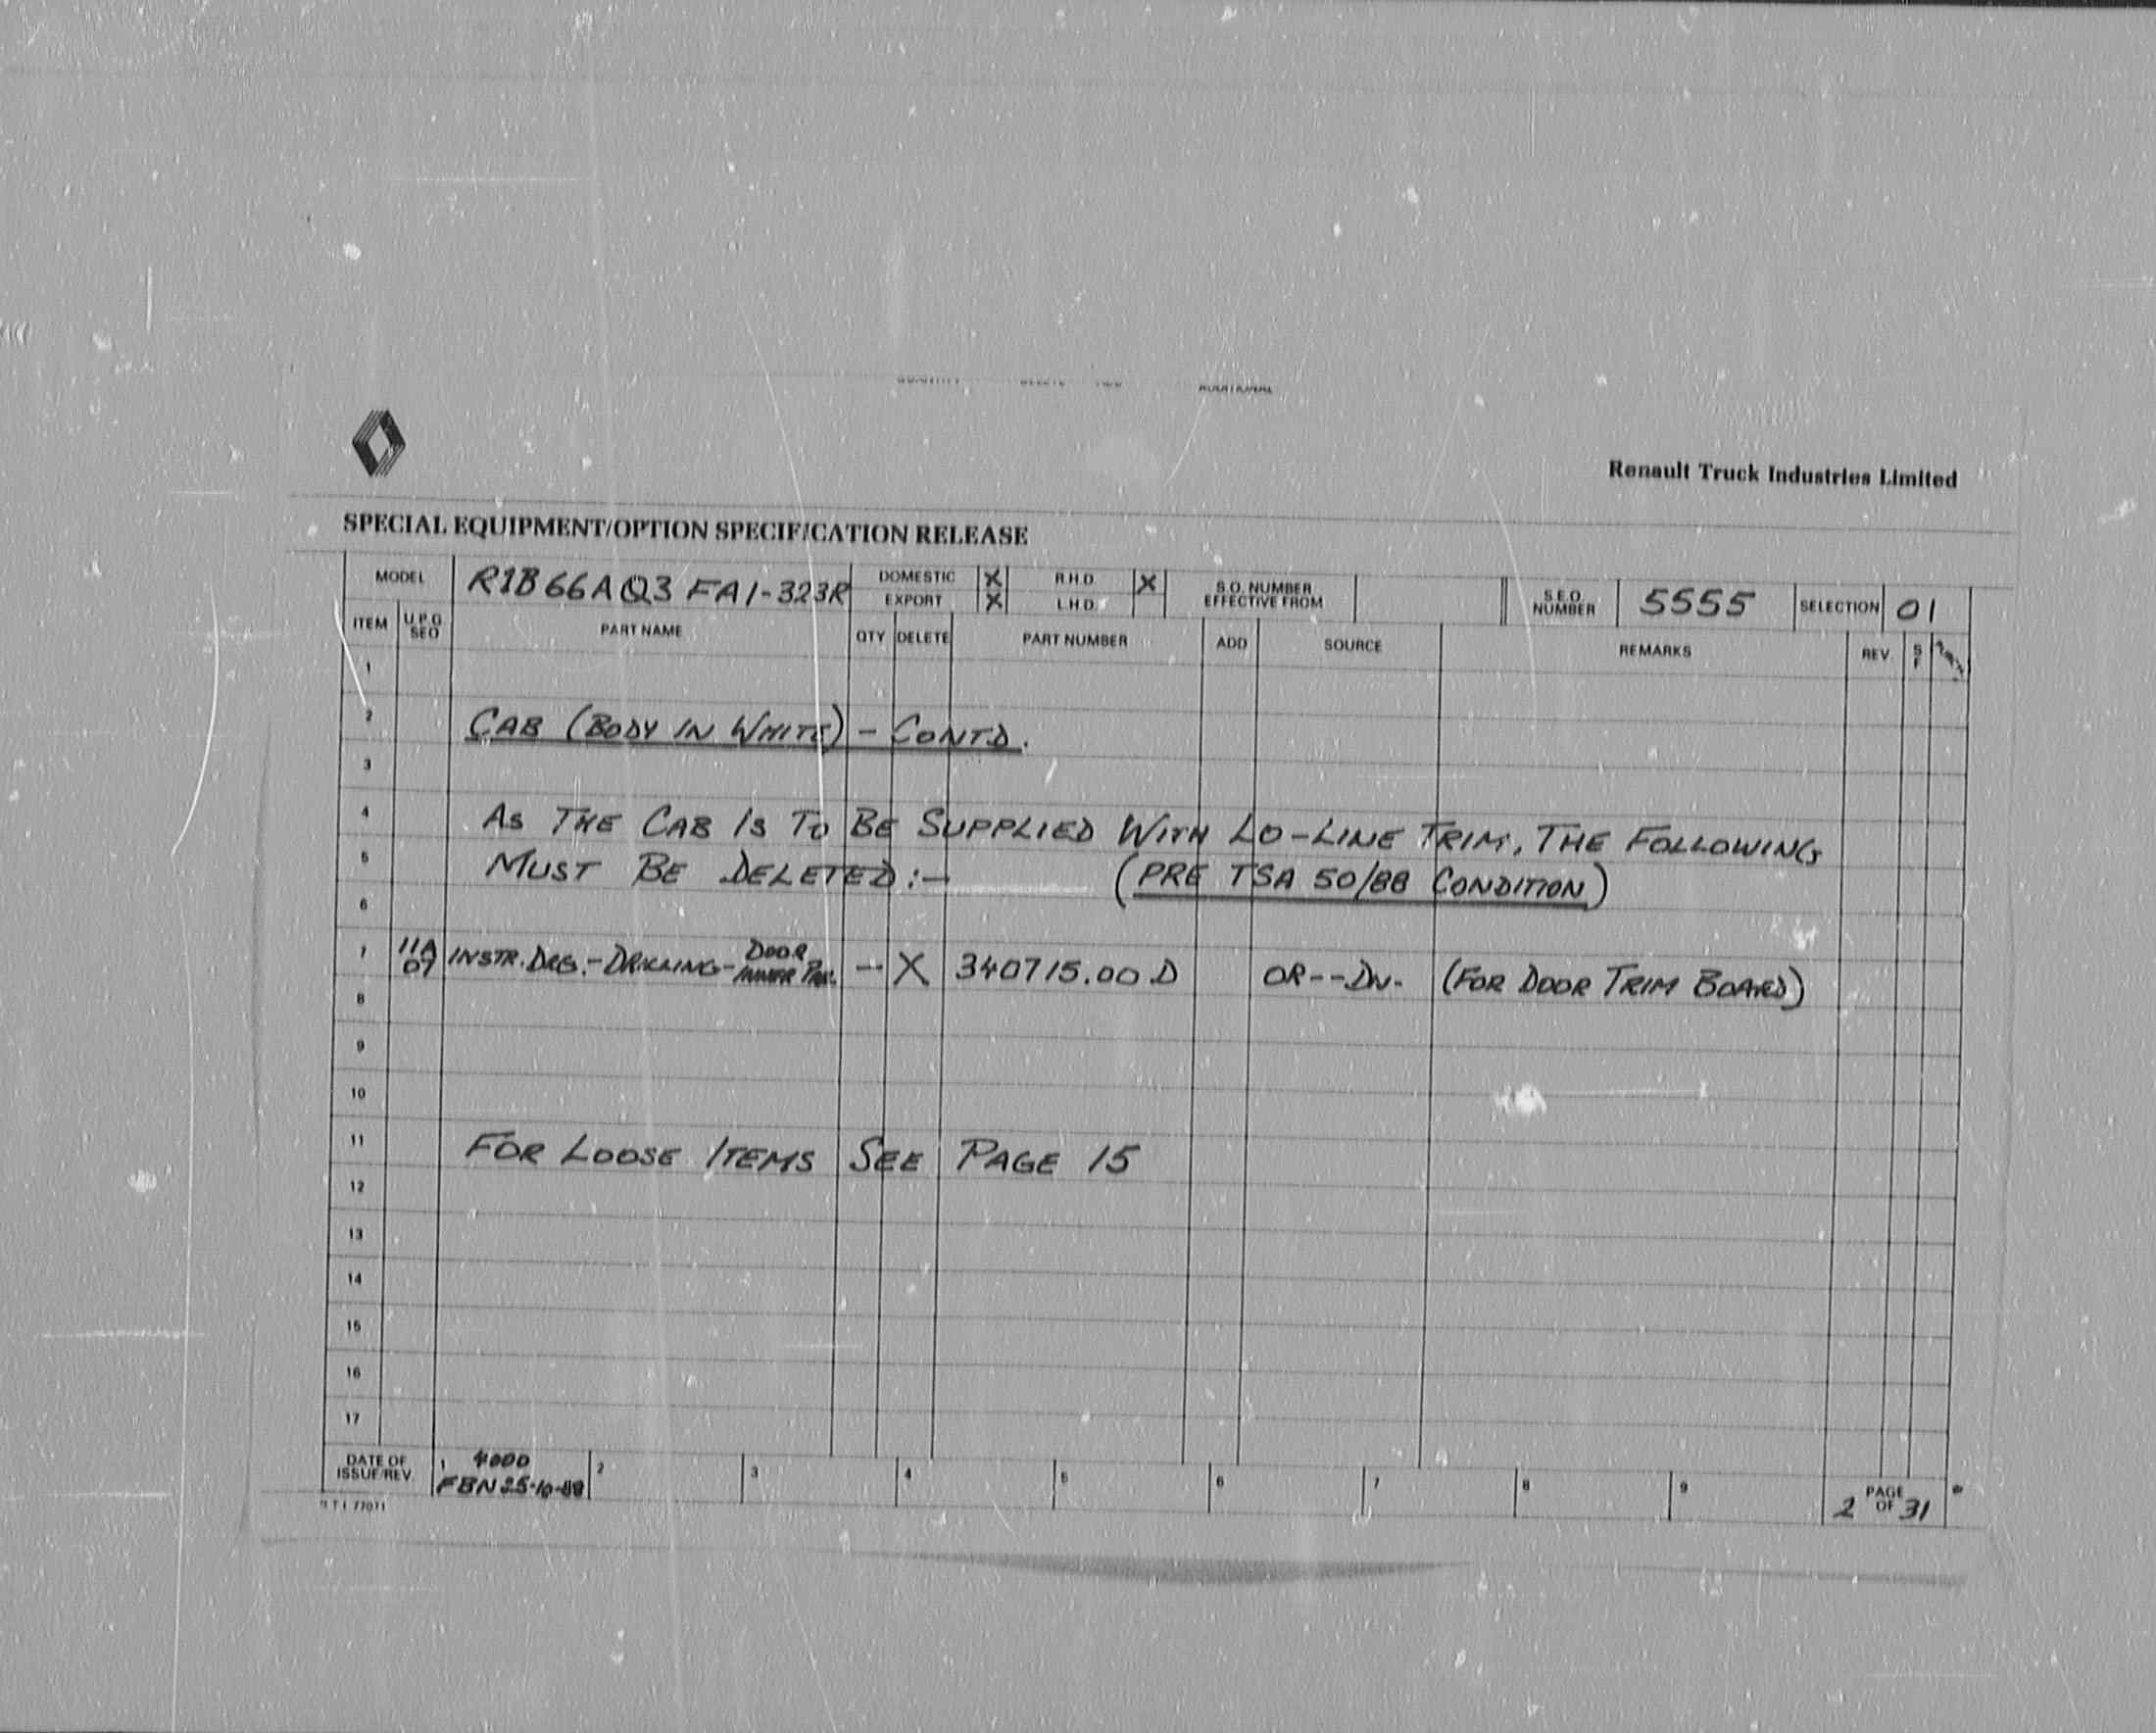 Renault Truck Industries Limited
SPECIAL EQUIPMENT/OPTION SPECIFICATION RELEASE
MODEL R1B66AQ3 FA1-323R DOMESTIC X R.H.D. X S.O. NUMBER EFFECTIVE FROM S.E.O. NUMBER 5555 SELECTION 01
EXPORT X L.H.D.
ITEM U.P.G SEO PART NAME QTY DELETE PART NUMBER ADD SOURCE REMARKS REV. S F
1
2 CAB (BODY IN WHITE) - CONTD.
3
4 AS THE CAB IS TO BE SUPPLIED WITH LO-LINE TRIM, THE FOLLOWING
5 MUST BE DELETED:- (PRE TSA 50/88 CONDITION)
6
7 11A 07 INSTR. DRG.-DRILLING-DOOR INNER PNL. - X 340715.00 D OR--DN. (FOR DOOR TRIM BOARD)
8
9
10
11 FOR LOOSE ITEMS SEE PAGE 15
12
13
14
15
16
17
DATE OF ISSUE/REV. 1 4000 FBN 25-10-88 2 3 4 5 6 7 8 9 PAGE 2 OF 31
R T I 77071